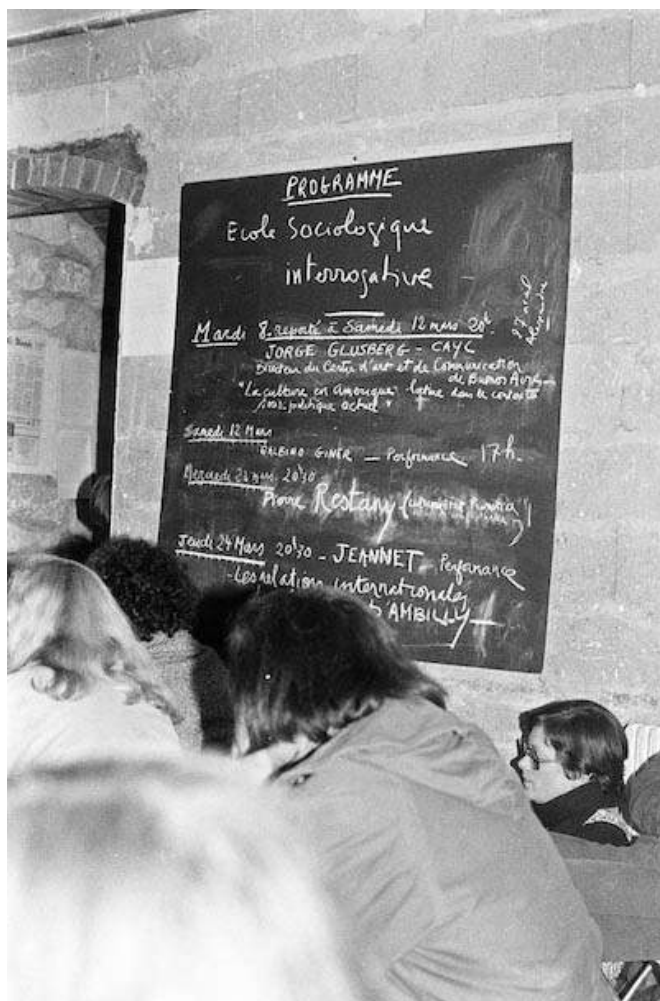 PROGRAMME
Ecole Sociologique
interrogative
Mardi 8. reporté à Samedi 12 mars 20h
JORGE GLUSBERG - CAYC
Directeur du Centre d'art et de Communication
de Buenos Aires
"La culture en amérique latine dans le contexte
politique actuel"
Samedi 12 Mars
BALBINO GINER - Performance 17h.
Mercredi 23 mars 20h30
Pierre Restany
Jeudi 24 Mars 20h30 - JEANNET - Performance
- Les relations internationales
D'AMBILLY -